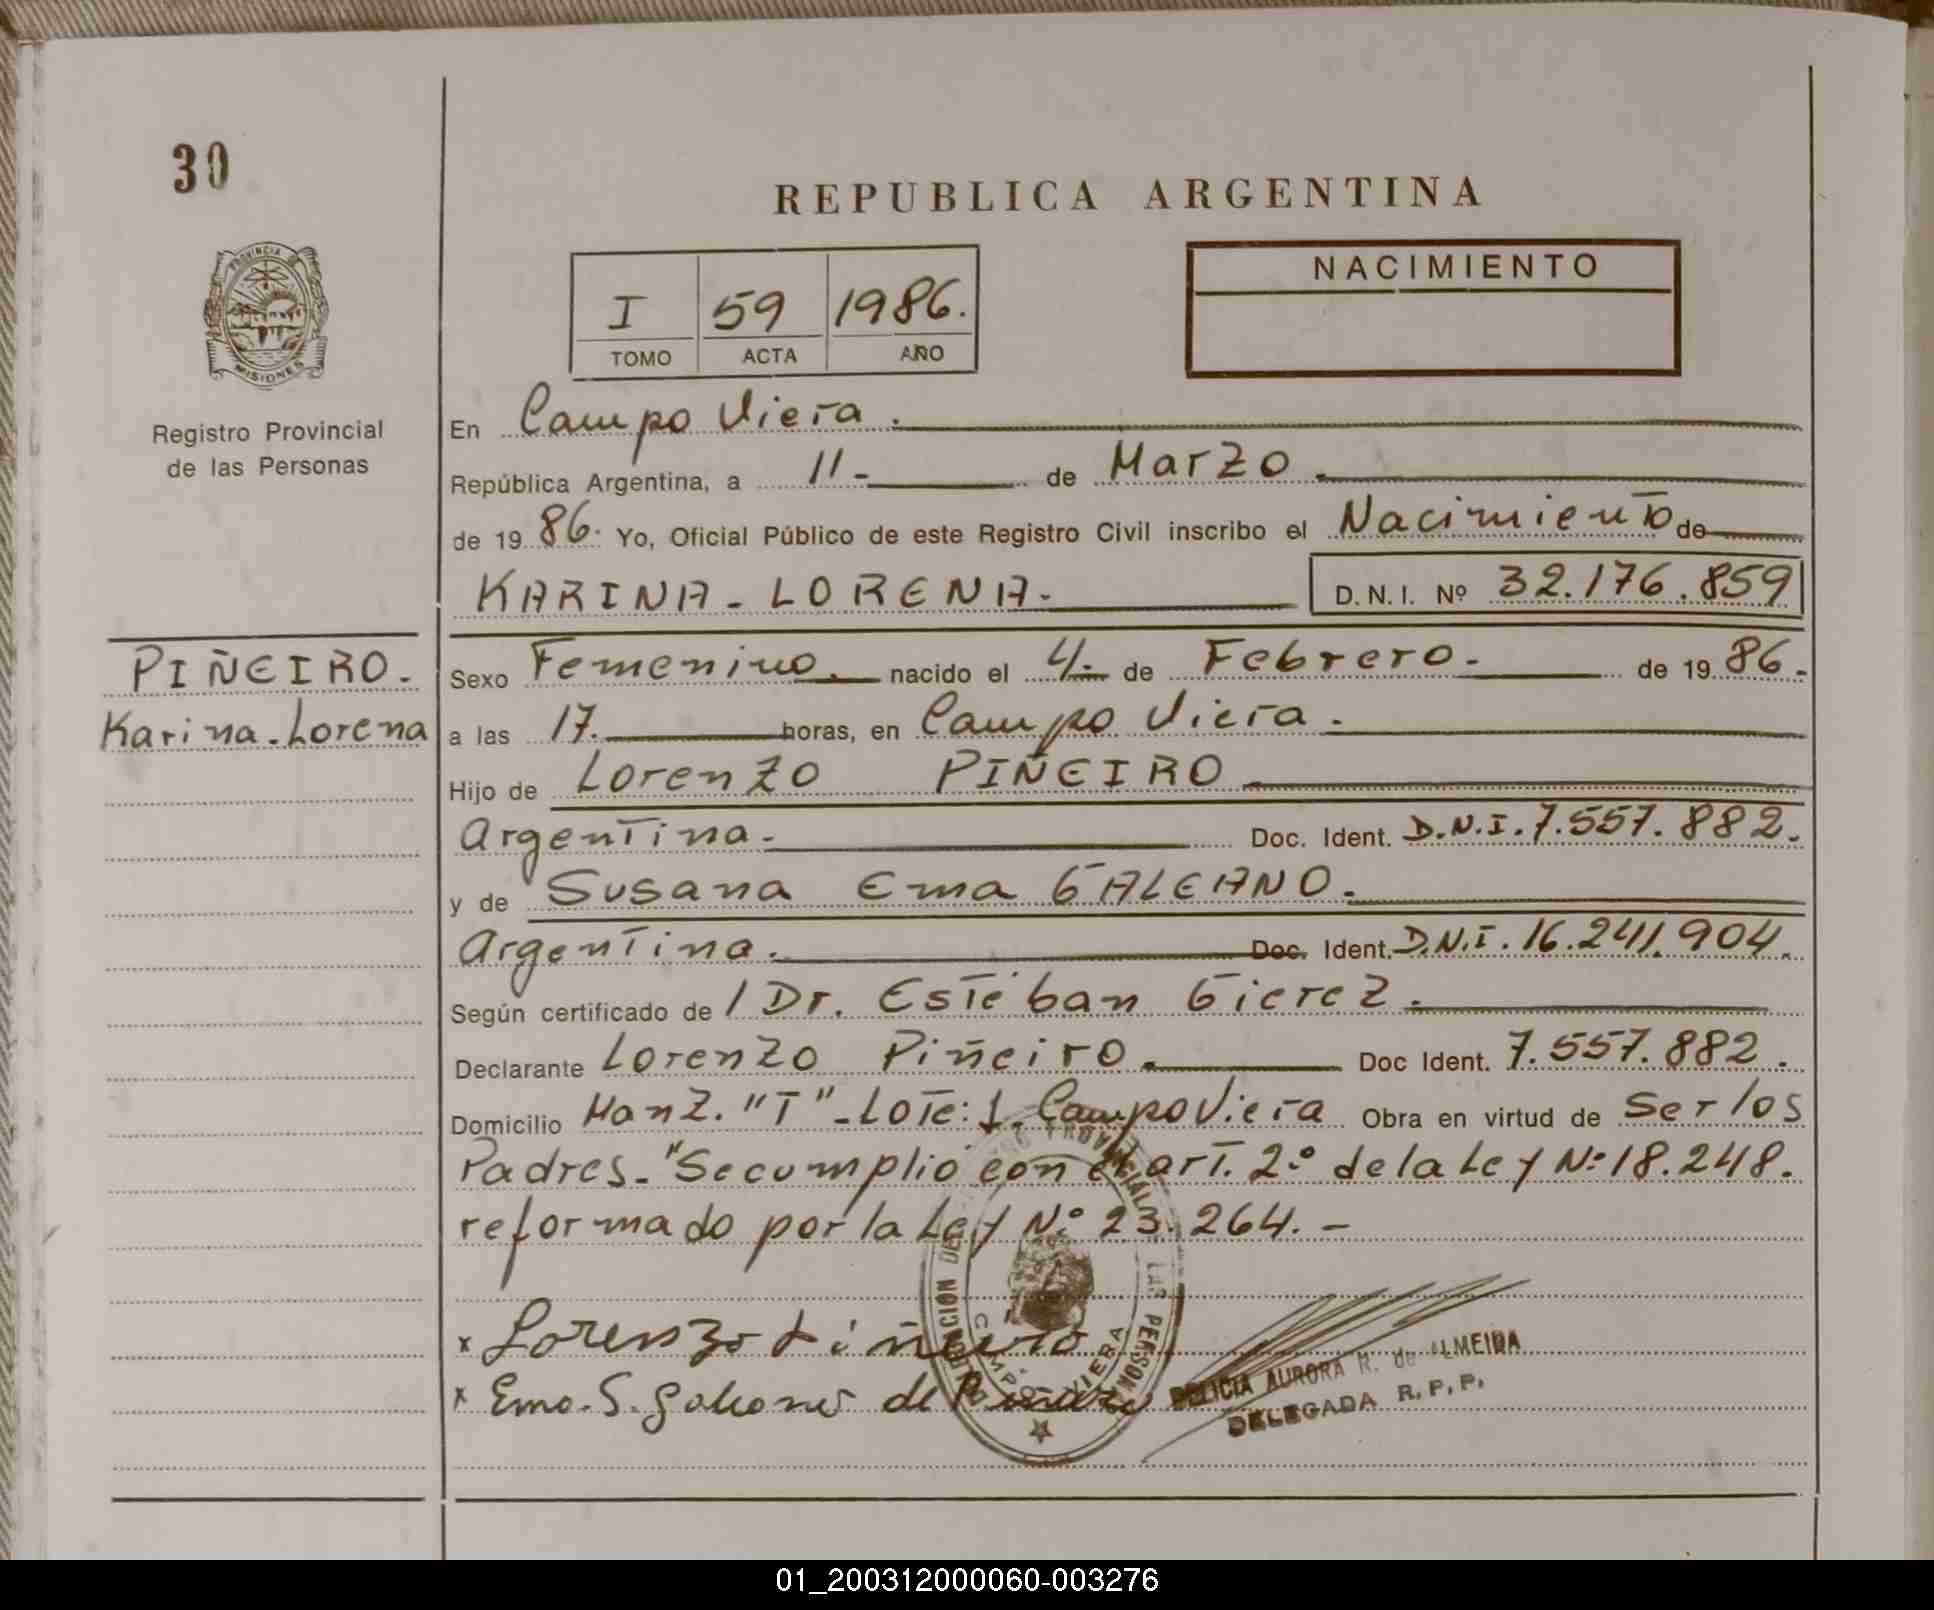 30
REPUBLICA ARGENTINA
PROVINCIA DE
MISIONES
Registro Provincial
de las Personas
I 59 1986.
TOMO ACTA AÑO
NACIMIENTO
En Campo Viera.
República Argentina, a 11- de Marzo.
de 19 86. Yo, Oficial Público de este Registro Civil inscribo el Nacimiento de
KARINA - LORENA. D.N.I. Nº 32.176.859
PIÑEIRO.
Karina-Lorena
Sexo Femenino. nacido el 4- de Febrero- de 19 86-
a las 17. horas, en Campo Viera.
Hijo de Lorenzo PIÑEIRO
Argentina. Doc. Ident. D.N.I. 7.557.882.
y de Susana Ema GALEANO.
Argentina. Doc. Ident. D.N.I. 16.241.904.
Según certificado de / Dr. Estéban Gierez.
Declarante Lorenzo Piñeiro. Doc Ident. 7.557.882.
Domicilio Manz. "T"-Lote: 1. Campo Viera Obra en virtud de Ser los
Padres-"Se cumplió con el art. 2º de la Ley Nº 18.248.
reformado por la Ley Nº 23.264.-
x Lorenzo Piñeiro
x Ema. S. Galeano de Piñeiro
LAS PERSONAS
CAMPO VIERA
DELICIA AURORA R. de ALMEIDA
DELEGADA R.P.P.
01_200312000060-003276